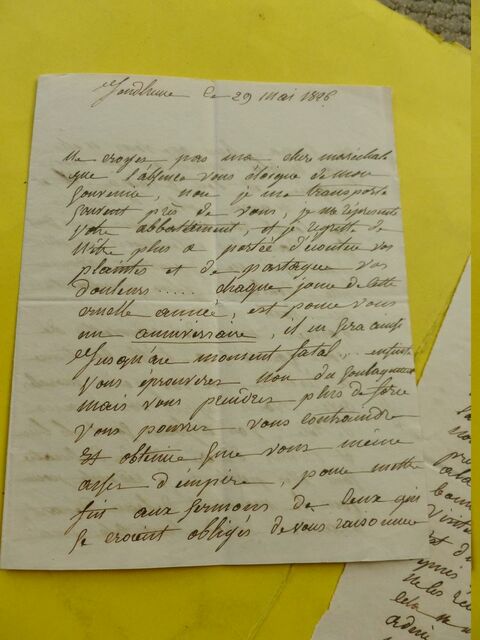 le 29 mai 18
Ne croyes pas ma cher marechale
que l'absence vous éloigne de mon
souvenir, non je me transporte
souvent près de vous, je me représente
votre abbattement, et je regrette de
n'être plus a portée d'écouter vos
plaintes et de partager vos
douleurs ..... chaque jour de cette
cruelle année, est pour vous
un anniversaire, il en sera ainsi
jusqu'au moment fatal, .. enfin
vous éprouveres non du soulagement
mais vous prendres plus de force
vous pourres vous contraindre
et obtenir sur vous même
asses d'empire, pour mettre
fin aux sermons de ceux qui
se croient obligés de vous raisonner